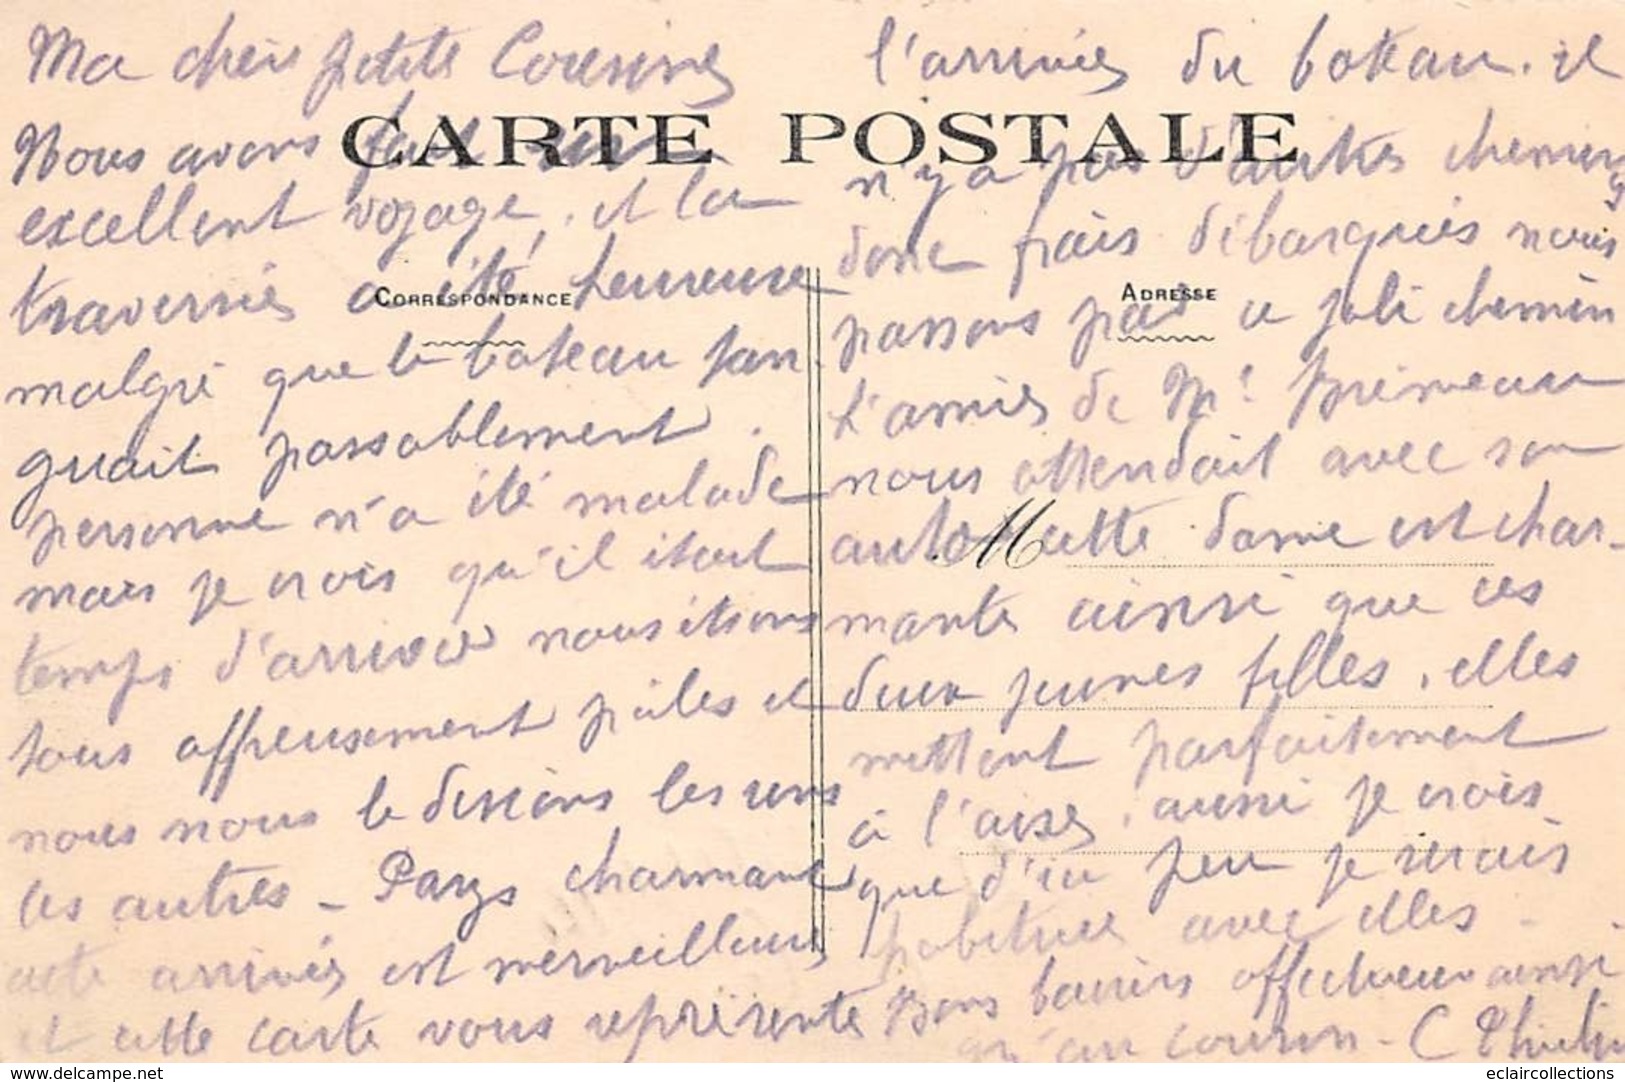 Ma chère petite Cousine
Nous avons fait un
excellent voyage, et la
traversée a été heureuse
malgré que le bateau tan
guait passablement.
personne n'a été malade
mais je crois qu'il était
temps d'arriver nous étions
tous affreusement pâles et
nous nous le disions les uns
les autres - Pays charmant
cette arrivée est merveilleuse
et cette carte vous représente
l'arrivée du bateau. il
n'y a pas d'autres chemins
donc frais débarqués nous
passons par ce joli chemin
L'amie de Mr
nous attendait avec son
auto cette dame est char-
mante ainsi que ses
deux jeunes filles. elles
mettent parfaitement
à l'aise, aussi je crois
que d'ici peu je serais
habituée avec elles -
Bons baisers affectueux ainsi
qu'au cousin - C
CARTE POSTALE
CORRESPONDANCE
ADRESSE
M
delcampe.net
eclaircollections